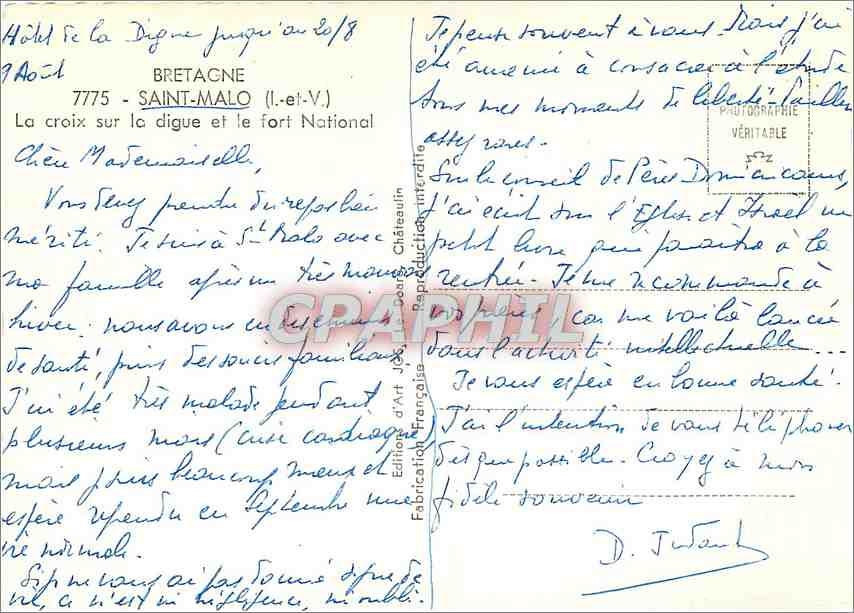 Hôtel de la Digue jusqu'au 20/8
9 Août
BRETAGNE
7775 - SAINT-MALO (I.-et-V.)
La croix sur la digue et le fort National
Chère Mademoiselle,
Vous devez prendre du repos bien
mérité. Je suis à St Malo avec
ma famille après un très mauvais
hiver : nous avons eu des ennuis
de santé, puis des soucis familiaux.
J'ai été très malade pendant
plusieurs mois (crise cardiaque)
mais puis beaucoup mieux et
espère reprendre en Septembre une
vie normale.
Si je ne vous ai pas donné signe de
vie, ce n'est ni négligence, ni oubli.
Editions d'Art JOS, Le Doaré, Châteaulin
Fabrication Française Reproduction interdite
Je pense souvent à vous. Mais j'ai
été amené à consacrer à l'étude
tous mes moments de liberté d'ailleurs
assez rares.
PHOTOGRAPHIE
VÉRITABLE
Sur le conseil de Pères Dominicains,
j'ai écrit sur l'Eglise et Israël un
petit livre qui paraîtra à la
rentrée. Je me recommande à
vos prières, car me voilà lancé
dans l'activité intellectuelle...
Je vous espère en bonne santé.
J'ai l'intention de vous téléphoner
dès que possible. Croyez à mon
fidèle souvenir
D.
GRAPHIL